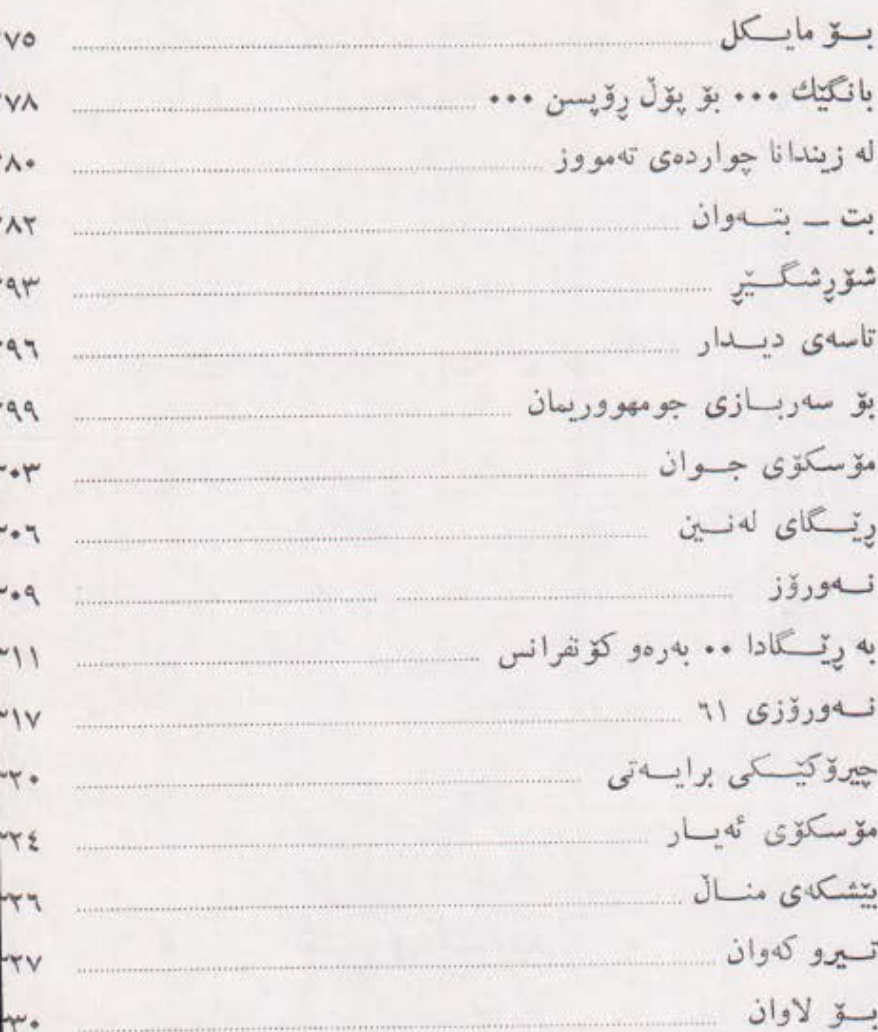 بۆ مایکل ٧٥
بانگێك ••• بۆ پۆڵ ڕۆپسن ••• ٧٨
له زیندانا چواردەی تەمووز ٨٠
بت ــ بتەوان ٨٢
شۆڕشگێڕ ٩٣
تاسەی دیدار ٩٦
بۆ سەربازی جومهووریمان ٩٩
مۆسکۆی جوان ٣٠٣
ڕێگای لەنین ٣٠٦
نەورۆز ٣٠٩
به ڕێگادا •• بەرەو کۆنفرانس ٣١١
نەورۆزی ٦١ ٣١٧
چیرۆکێکی برایەتی ٣٢٠
مۆسکۆی ئەیار ٣٢٤
بێشکەی مناڵ ٣٢٦
تیرو کەوان ٣٢٧
بۆ لاوان ٣٣٠